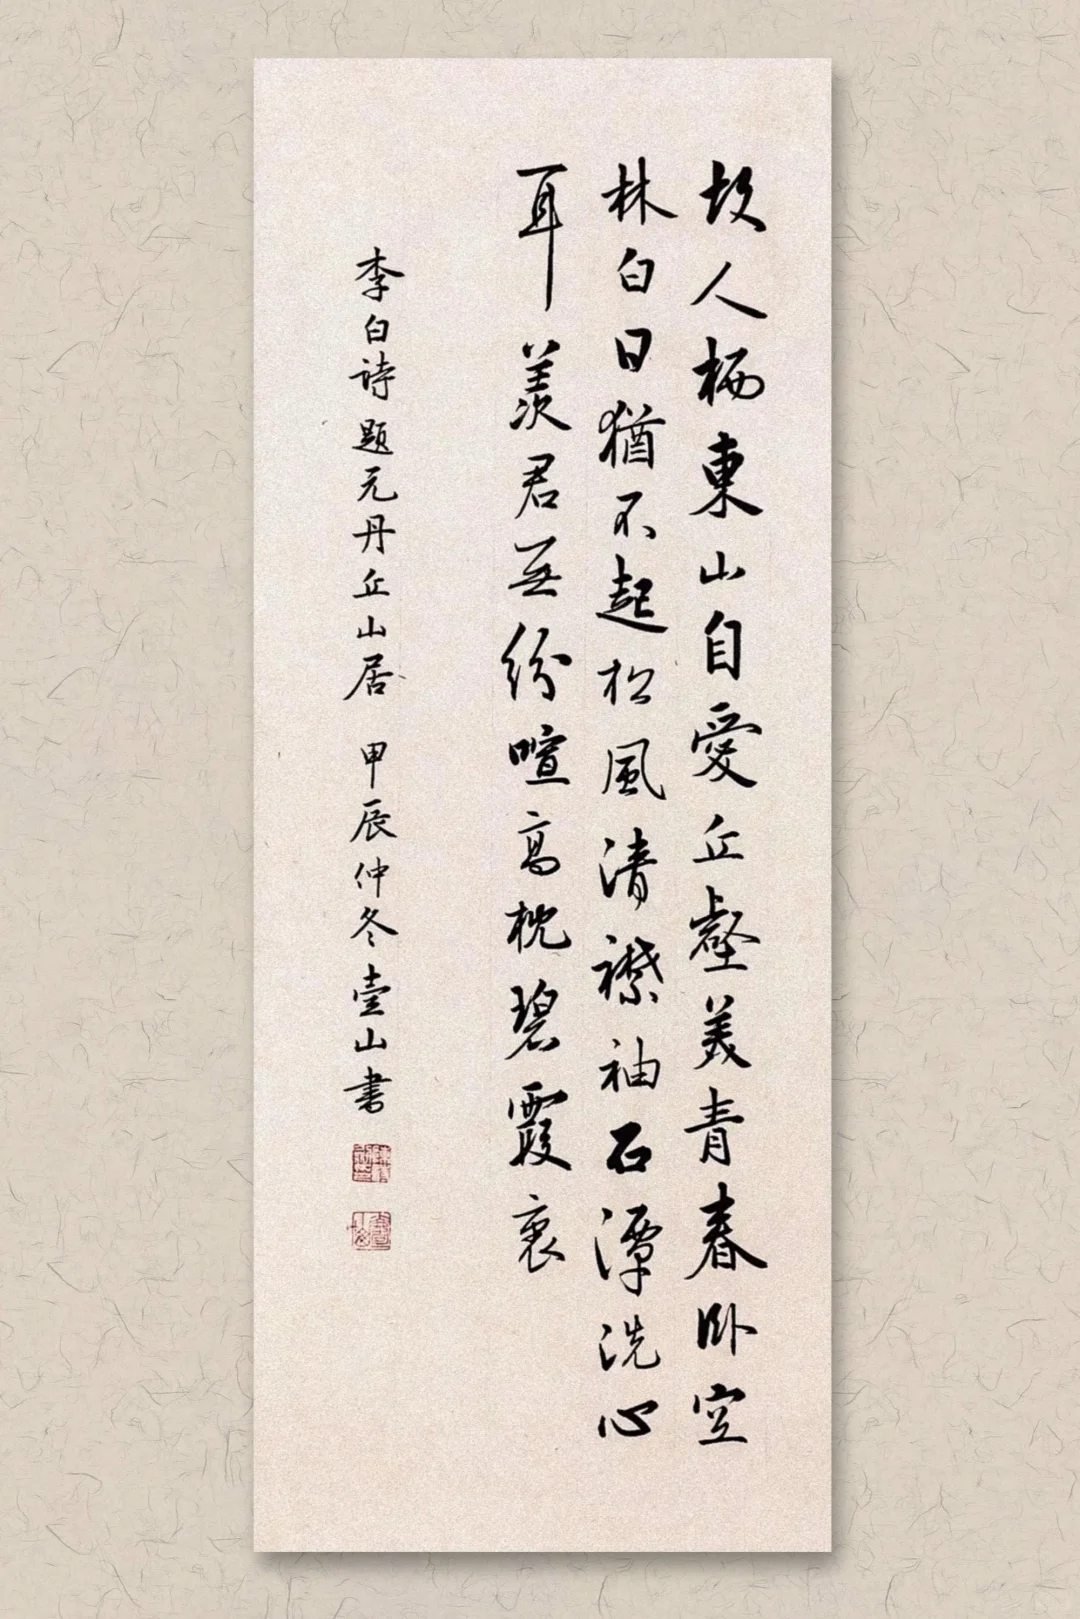 故人栖東山自愛丘壑美青春卧空
林白日猶不起松風清襟袖石潭洗心
耳羨君無紛喧高枕碧霞裏
李白诗题元丹丘山居 甲辰仲冬壹山书